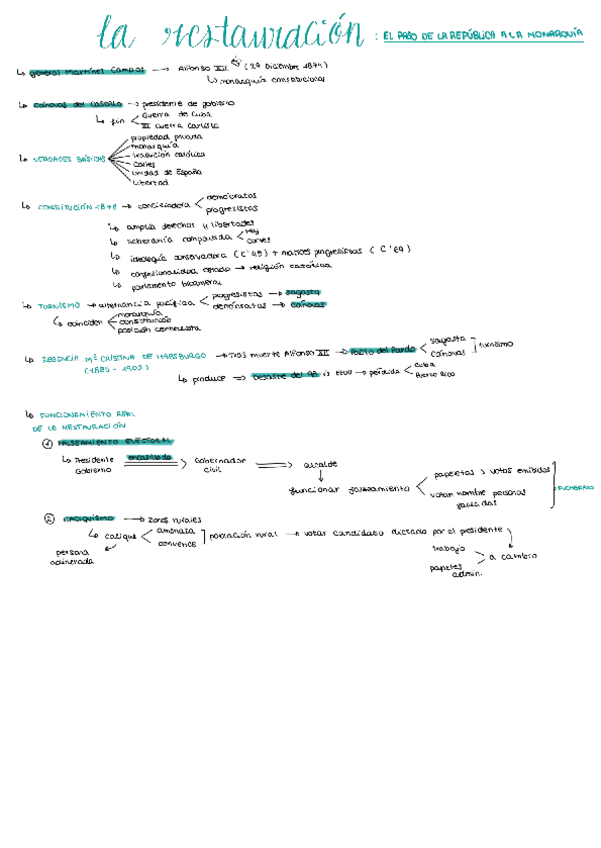 la restauración : EL PASO DE LA REPÚBLICA A LA MONARQUÍA
general Martínez Campos → Alfonso XII (29 Diciembre 1874)
monarquía constitucional
Cánovas del Castillo → presidente de gobierno
fin < Guerra de Cuba
III Guerra Carlista
VERDADES BÁSICAS
propiedad privada
monarquía
tradición católica
Cortes
unidad de España
libertad
CONSTITUCIÓN 1876 → conciliadora < demócratas
progresistas
amplia derechos y libertades
soberanía compartida < rey
cortes
ideología conservadora (C'45) + matices progresistas (C'69)
confesionalidad estado → religión católica
parlamento bicameral
TURNISMO → alternancia pacífica < progresistas → Sagasta
demócratas → Cánovas
coinciden < monarquía
constitución
posición centralista
REGENCIA Mª CRISTINA DE HABSBURGO → Tras muerte Alfonso XII → Pacto del Pardo < Sagasta
Cánovas ] turnismo
(1885 - 1902)
produce ⇒ Desastre del 98 → pérdida < Cuba
Puerto Rico
FUNCIONAMIENTO REAL
DE LA RESTAURACIÓN
① FALSEAMIENTO ELECTORAL
Presidente Gobierno encasillado ⇒ Gobernador civil ⇒ alcalde
funcionar falseamiento < papeletas > votos emitidos
votar nombre personas fallecidas
PUCHERAZO
② CACIQUISMO → zonas rurales
cacique < amenaza
convence ] población rural → votar candidato dictado por el presidente
persona adinerada
trabajo
papeles admin. > a cambio